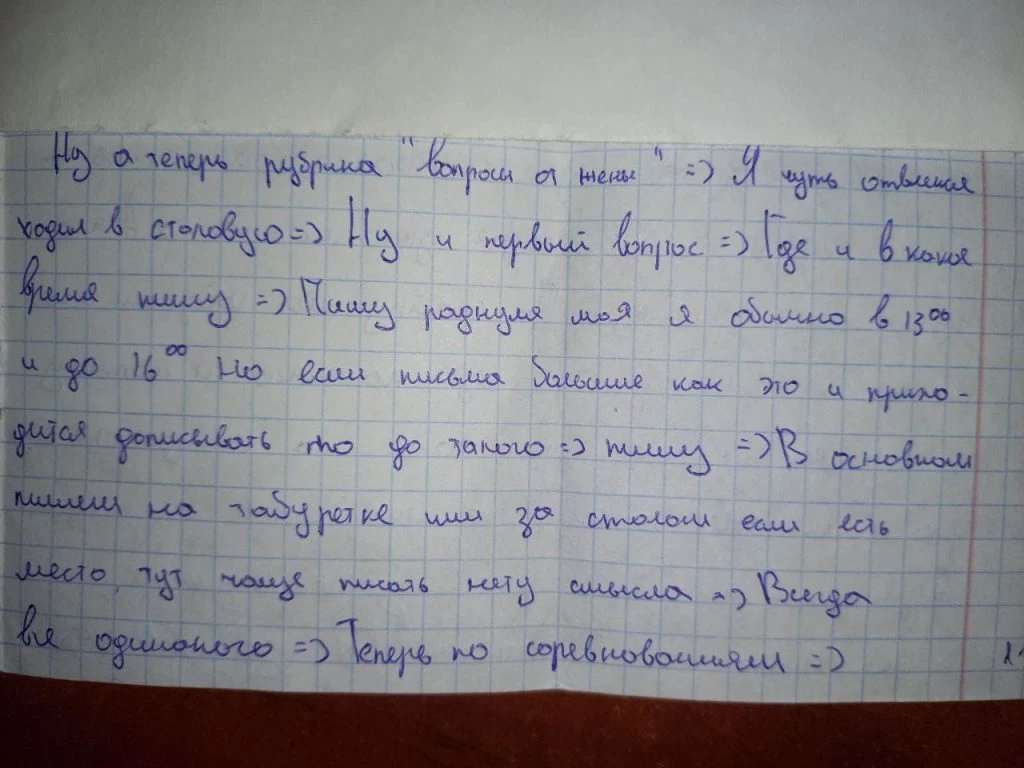 Ну а теперь рубрика "вопросы от жены" => Я чуть отвлекся
ходил в столовую => Ну и первый вопрос => Где и в какое
время пишу => Пишу роднуля моя я обычно в 13⁰⁰
и до 16⁰⁰ но если письма больше как это и прихо-
дится дописывать то до такого => пишу => В основном
пишем на табуретке или за столом если есть
место, тут чаще писать нету смысла => Всегда
все одинаково => Теперь по соревнованиям =>